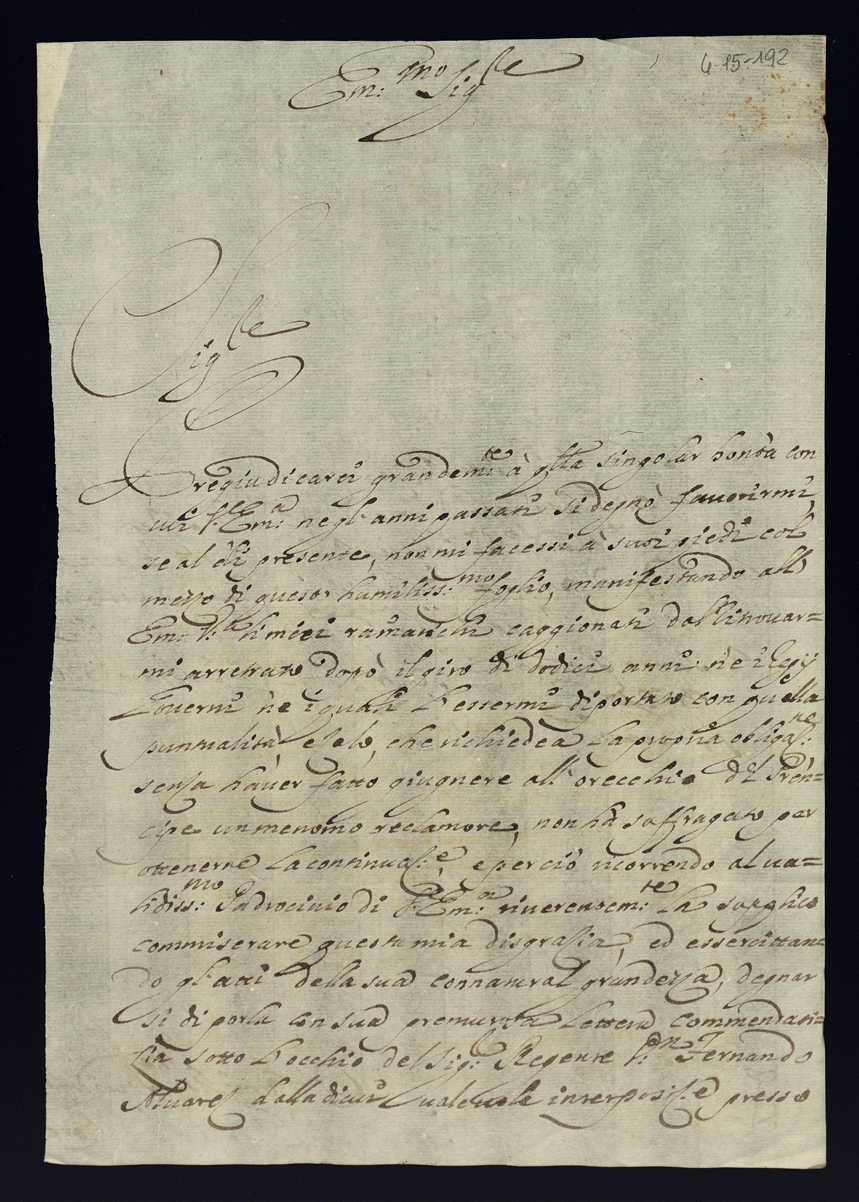 4-15-192
Em:mo Sigre
Sigre
Pregiudicarei grandemte à qlla singolar bontà con
cui V.Em:a negl'anni passati si degnò favorirmi,
se al dì presente, non mi facessi à suoi piedi col
mezzo di questo humiliss:mo foglio, manifestando all'
Em: V:a li miei ramarichi caggionati dall'ritrovar=
mi arretrato dopò il giro di dodici anni ne Regij
Governi ne i quali l'essermi diportato con quella
puntualità e zelo, che richiedea la propria obligaz:ne
senza haver fatto giugnere all'orecchio del Pren=
cipe un menomo reclamore, non hà suffragato per
ottenerne la continuaz:e, e perciò ricorrendo al va=
lidiss:mo Padrocinio di V.Em:a riverentem:te la supplico
commiserare questa mia disgrazia, ed essercittan=
do gl'atti della sua connatural grandezza, degnar
si di porla con sua premurosa lettera commendati=
zia sotto l'occhio del Sig: Regente D:n Fernando
Alvarez dalla di cui valevole interposiz:e presso